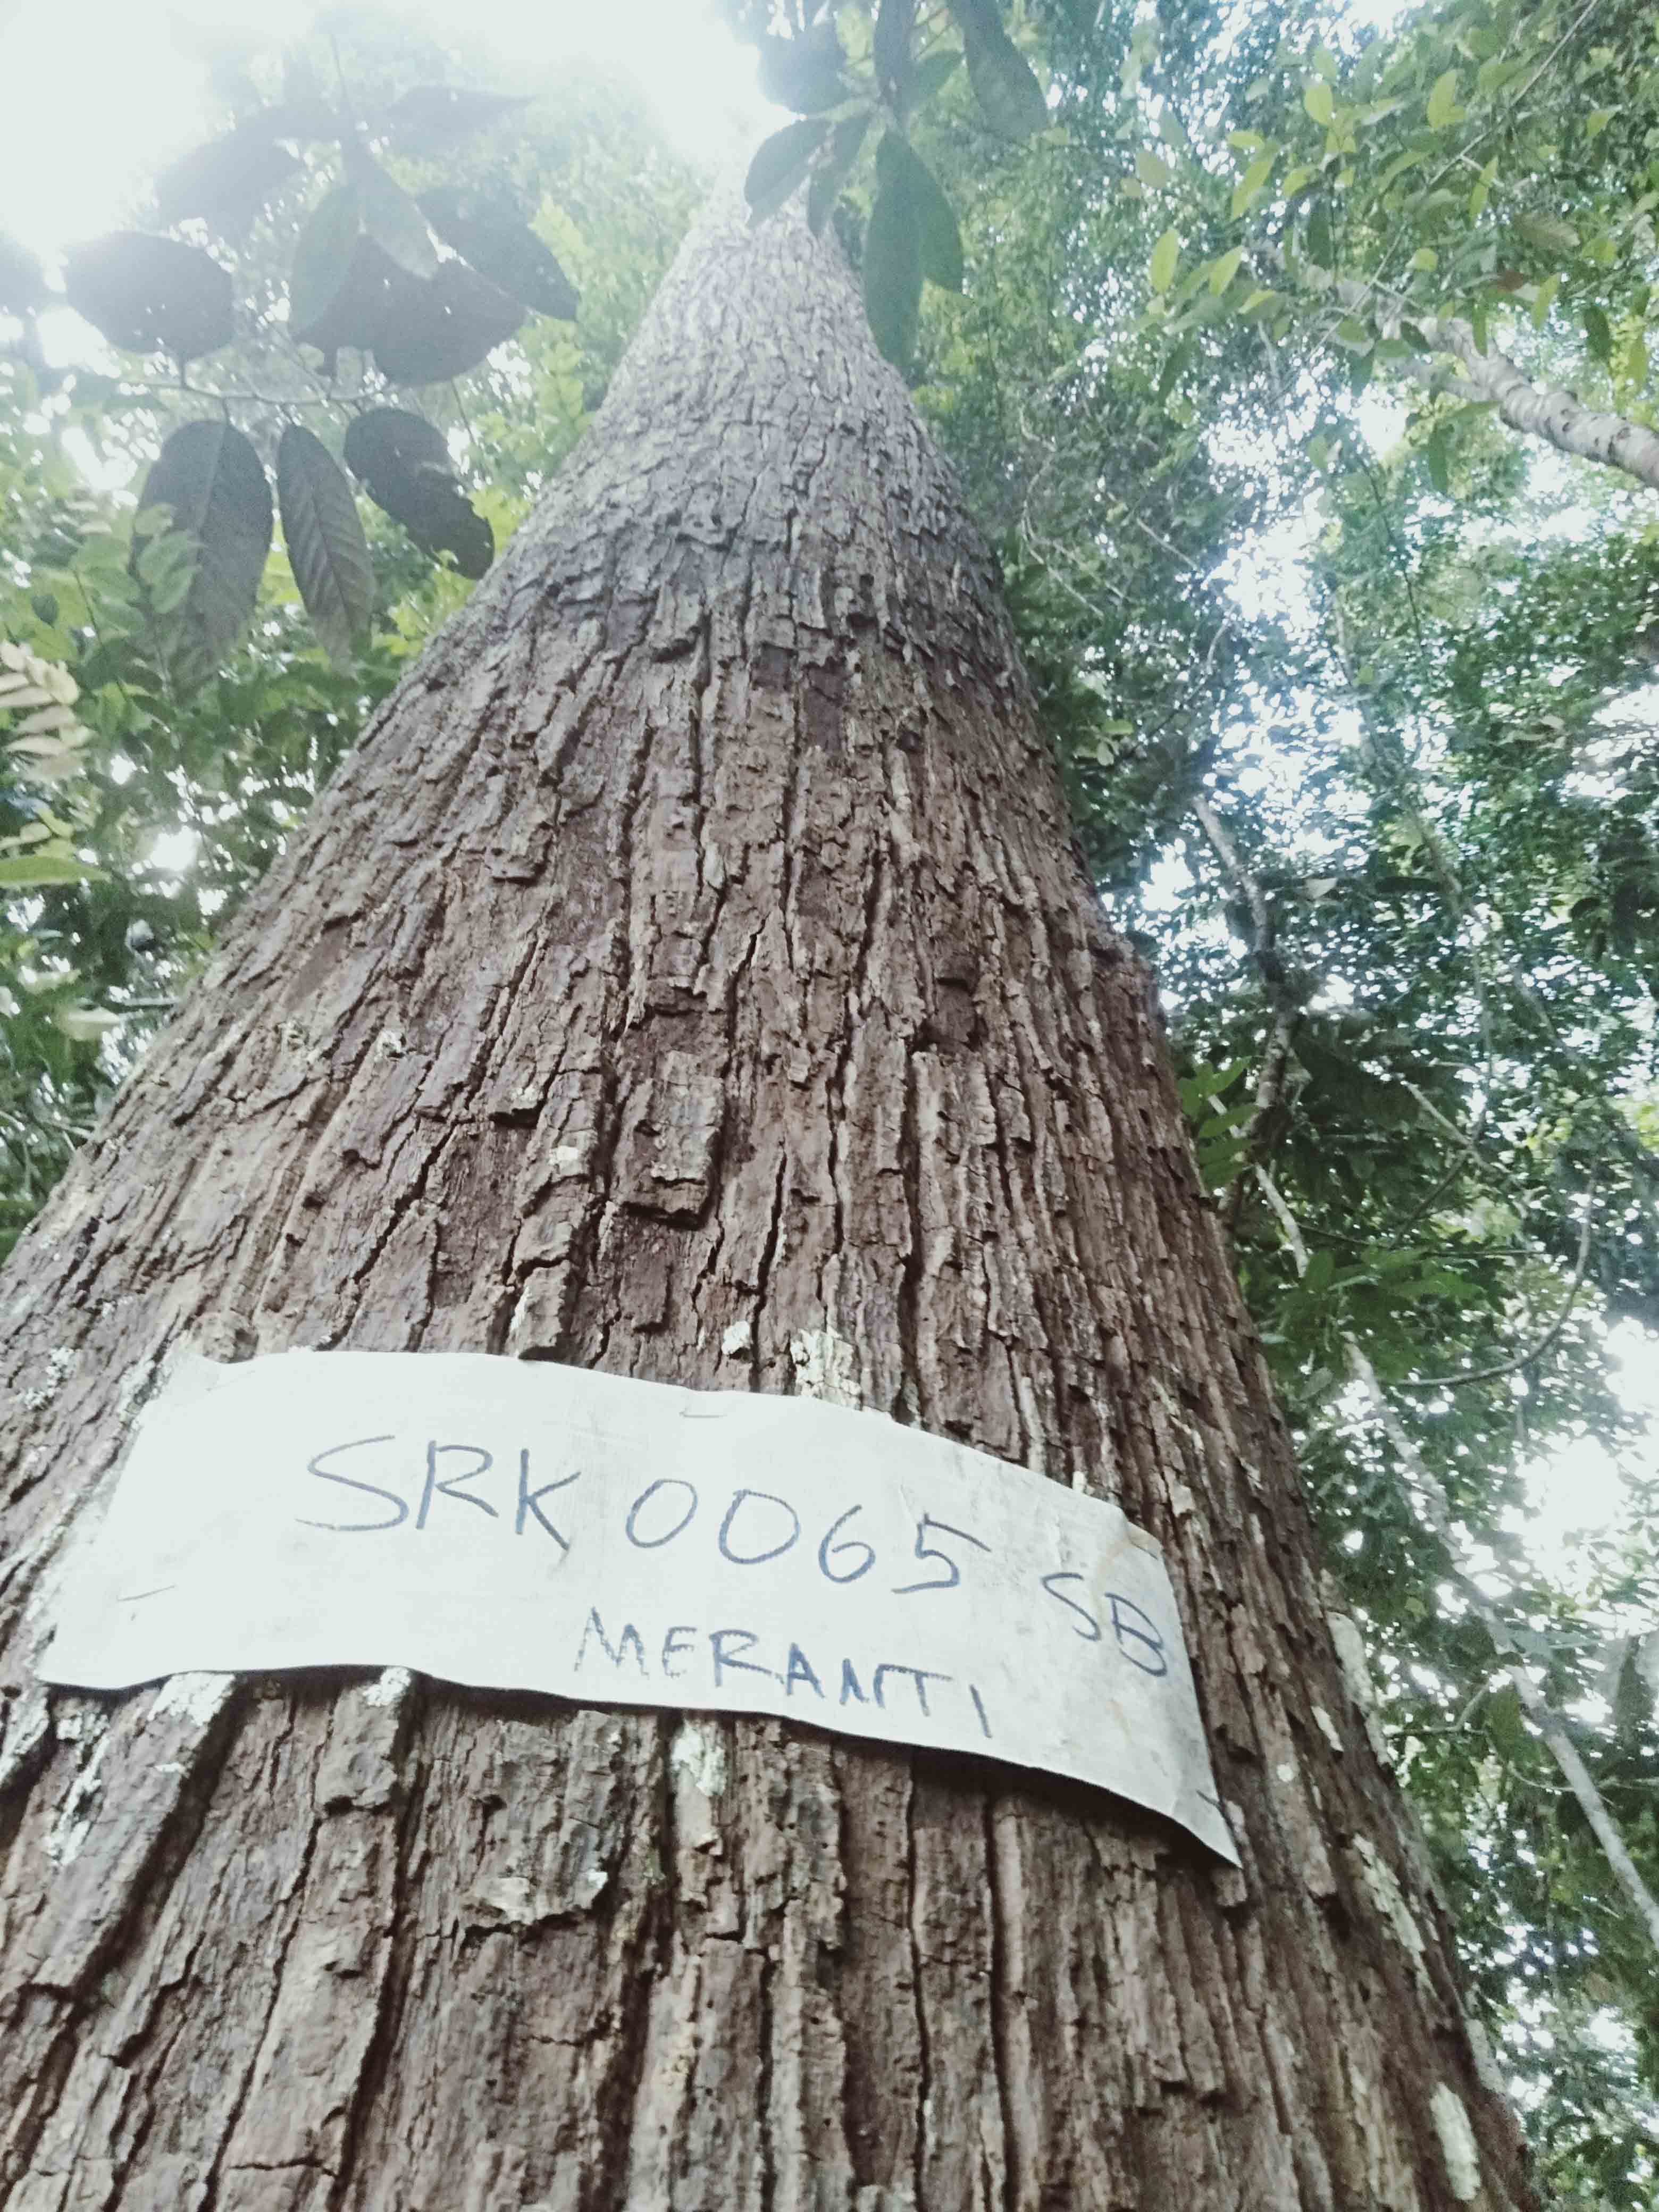 SRK 0065 SB
MERANTI